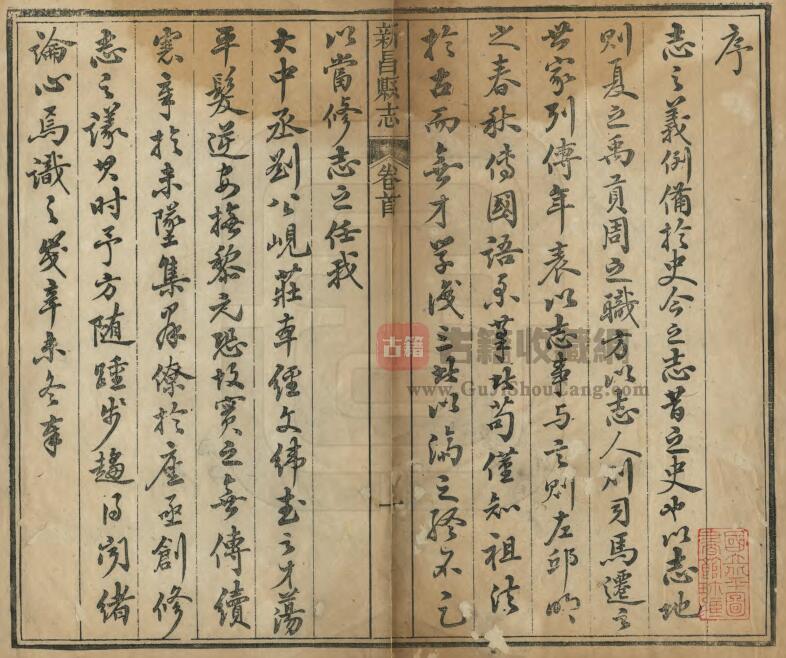 序
志之義例備於史今之志昔之史也以志地
則夏之禹貢周之職方以志人則司馬遷之
世家列傳年表以志事與言則左邱明
之春秋傳國語系業於苟僅知祖法
於古而無才學識三者以濟之終不足
以當修志之任我
大中丞劉公峴莊車經文緯武之才蕩
平髮逆安撫黎元恐故實之無傳續
憲章於未墜集羣僚於座亟創修
志之議其時予方随踵步趨得聞緒
論心焉識之歲辛未冬奉
新昌縣志
卷首
一
古籍
古籍收藏網
www.GuJiShouCang.com